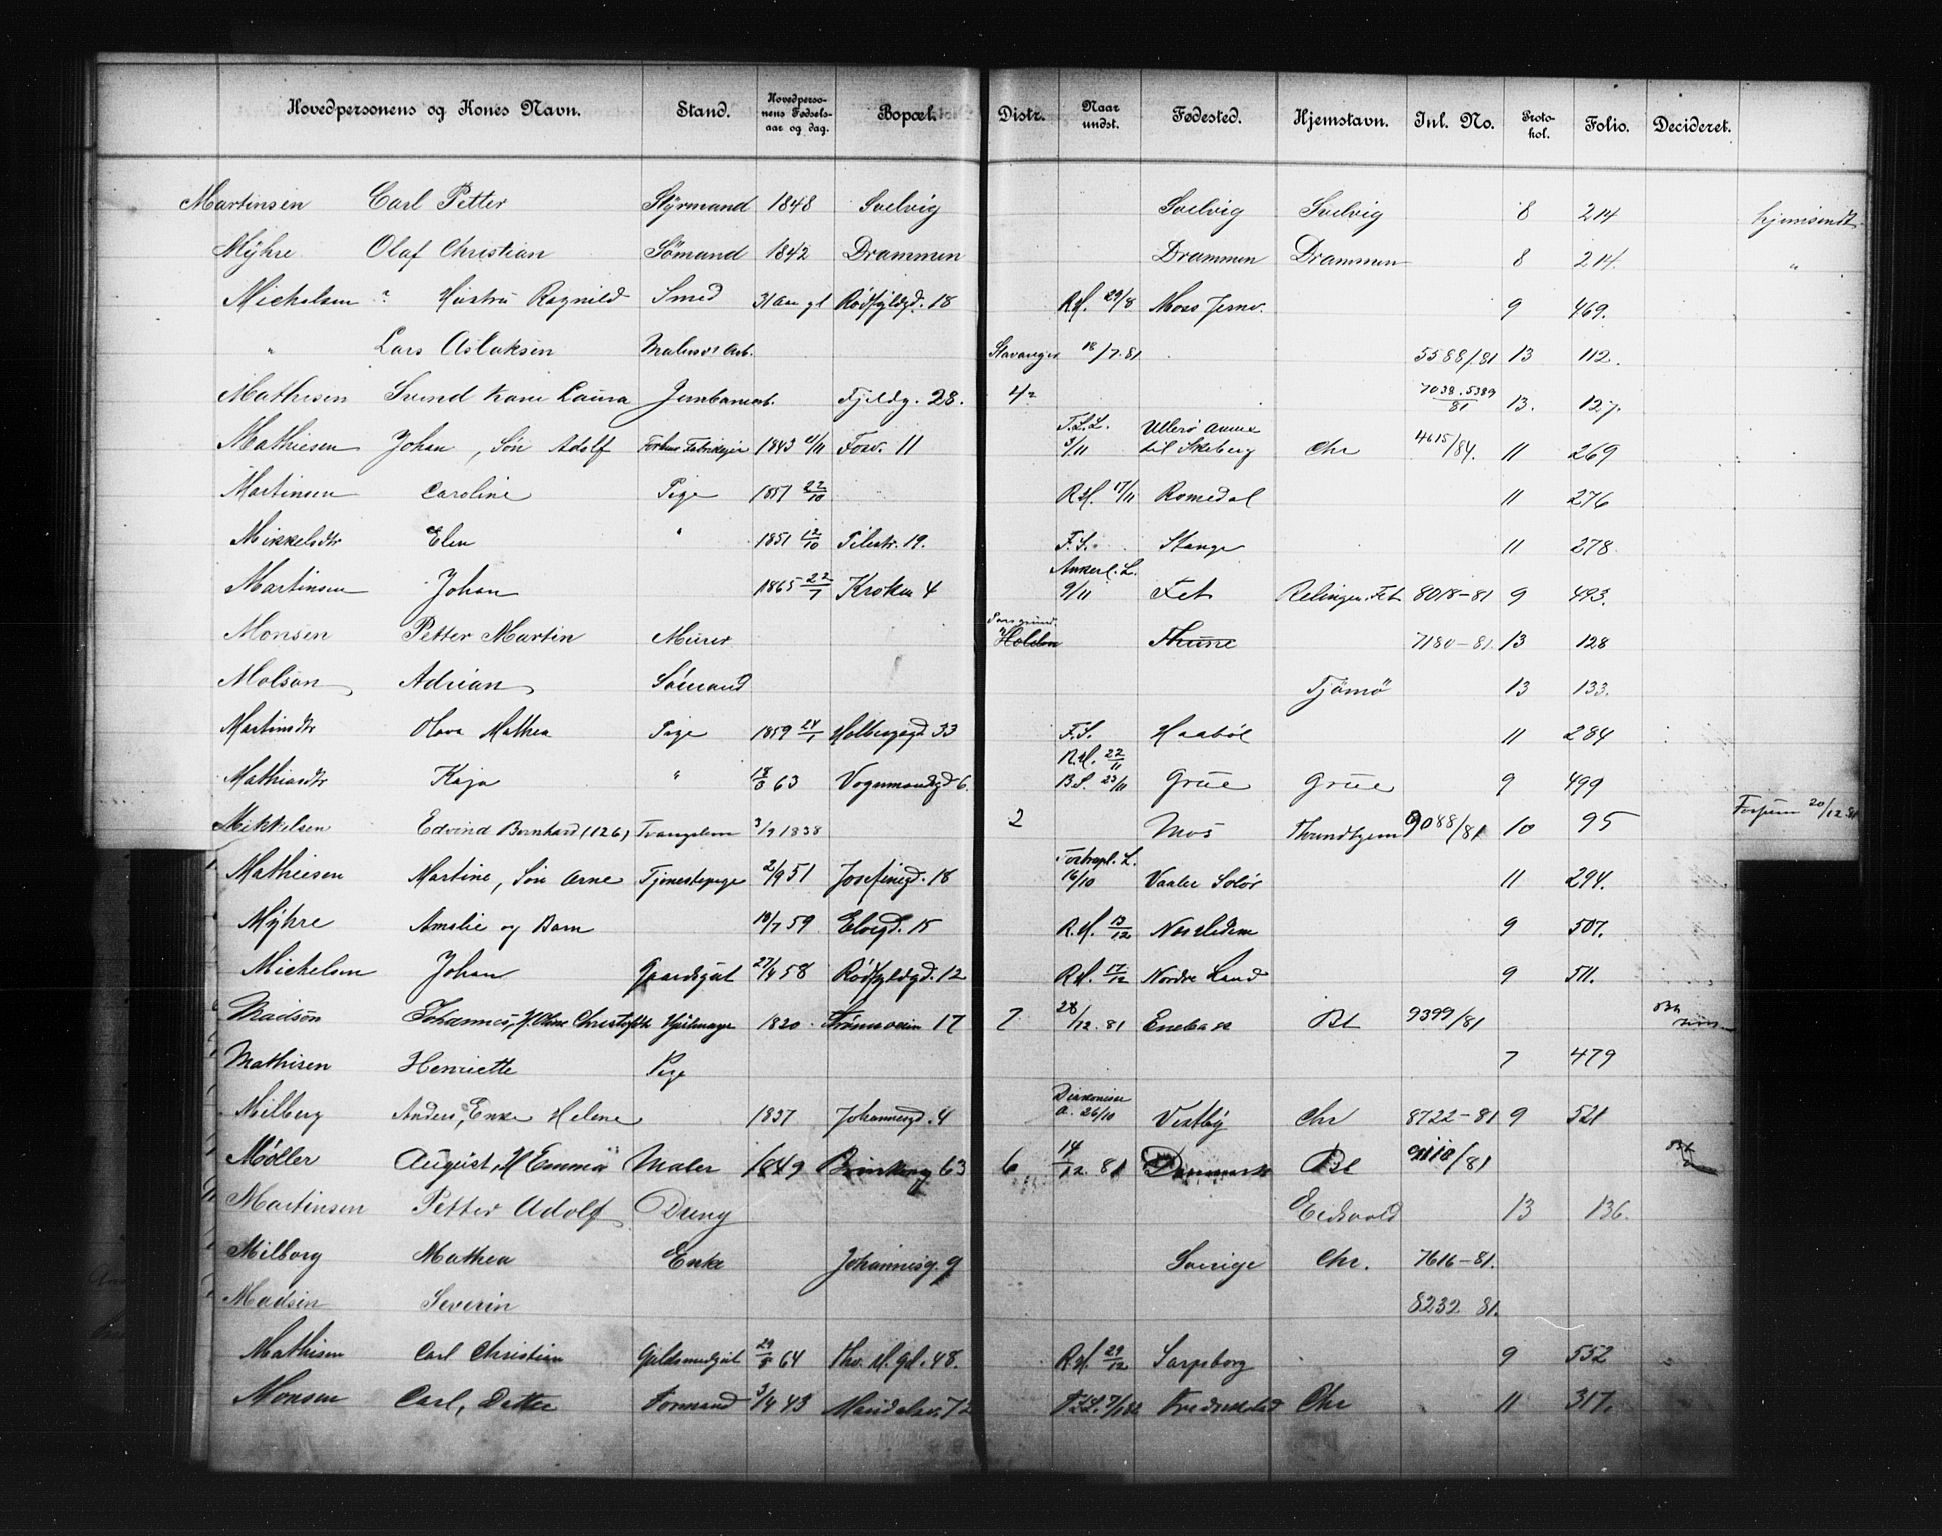 Hovedpersonens og Kones Navn. Stand. Hovedpersonens Fødselsaar og dag. Bopæl. Distr. Naar undst. Fødested. Hjemstavn. Inl. No. Protokol. Folio. Decideret.
Martinsen Carl Petter Styrmand 1848 Svelvig Svelvig Svelvig 8 214 hjemsendt
Myhre Olaf Christian Sømand 1842 Drammen Drammen Drammen 8 214. "
Michelsen ? Hustru Ragnild Smed 31 aar gl Rødfyldgd. 18 R.H. 29/8 Moss Jernv. 9 469.
" Lars Aslaksen Stavanger 18/7.81 5588/81 13 112.
Mathisen Svend Kone Laura Jernbanearb. Fjeldg. 28. 4 7038.5389/81 13. 127.
Mathiesen Johan, Søn Adolf 1843 Fosv. 11 F.S.L. 3/11 Ullerø Annex til Skeberg Chr 4615/84. 11 269
Martinsen Caroline Pige 1857 22/10 R.H. 17/11 Romedal 11 276
Mikkelsdtr Elen " 1851 12/10 Pilestr. 19. F.S. Stange 11 278
Martinsen Johan 1865 22/7 Kroken 4 Ankerl. L. 9/11 Fet Relingen. Fet 8018-81 9 493.
Monsen Petter Martin Murer Porsgrund. 7180-81. 13 128
Molsøn Adrian Sømand Tjømø 13 133.
Martinsdtr Olava Mathea Pige 1859 24/1 Holbergsgd 33 F.S. Haabøl 11 284
Mathiasdtr Kaja " 18/8 63 Vognmandsgd 6. R.H. 22/11 B.S. 23/11 Grue Grue 9 499
Mikkelsen Edvind Bernhard (126) 3/9 1838 2 Mos Throndhjem 9088/81 10 95 20/12 81
Mathiesen Martine, Søn Arne Tjenestepige 2/9 51 Josefinegd. 18 16/10 Vaaler Solør 11 294.
Myhre Amalie og Barn 10/7 59 Elvegd. 15 R.H. 13/12 9 507.
Michelsen Johan Gaardsgut 27/4 58 Rødfyldgd. 12 R.H. 17/12 Nordre Land 9 511.
Madsøn Johannes, H. Oline Christofdtr 1820 17 7 28/12.81 Enebak Bl 9399/81
Mathisen Henriette Pige 7 479
Milberg Anders, Enke Helene 1837 Johannesgd. 4 Diakonisse a. 26/10 Vestby Chr 8722-81 9 521
Møller August, H Emma Maler 1849 63 6 14/12 81 Danmark Bl 9118/81
Martinsen Petter Adolf Dreng Eidsvold 13 136.
Milborg Mathea Enke Johannesg. 9 Sverige Chr. 7616-81.
Madsen Severin 8232 81.
Mathisen Carl Christian Guldsmedgut 29/8 64 Thv. M. gd. 48. R.H. 29/12 Sarpsborg 9 552
Monsen Carl, Datter Formand 3/4 43 Maridalsv. 72 Fredrikstad Chr 11 317.